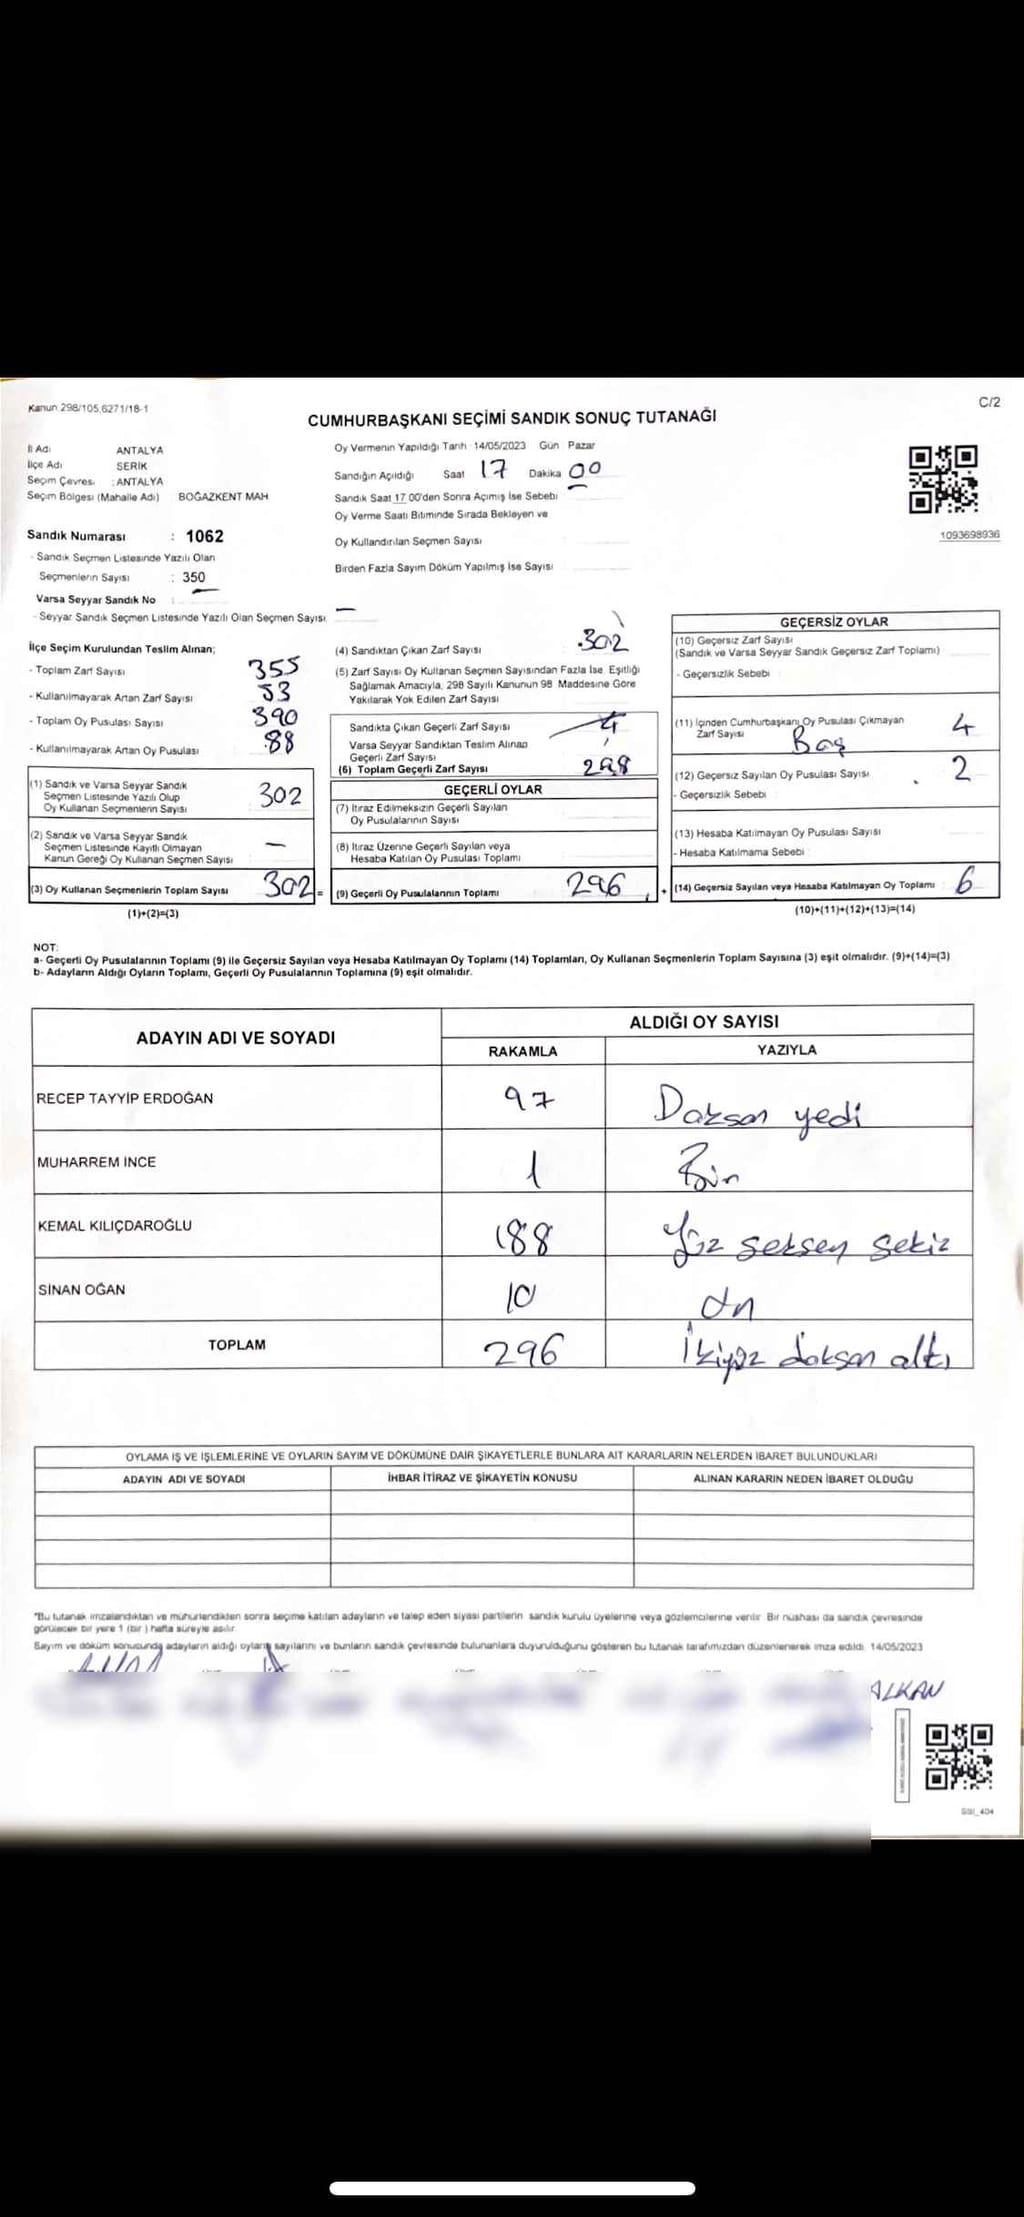 Kanun 298/105,6271/18-1
C/2
CUMHURBAŞKANI SEÇİMİ SANDIK SONUÇ TUTANAĞI
İl Adı ANTALYA
İlçe Adı SERİK
Seçim Çevresi : ANTALYA
Seçim Bölgesi (Mahalle Adı) BOĞAZKENT MAH
Oy Vermenin Yapıldığı Tarih 14/05/2023 Gün Pazar
Sandığın Açıldığı Saat 17 Dakika 00
Sandık Saat 17 00'den Sonra Açımış İse Sebebi
Oy Verme Saati Bitiminde Sırada Bekleyen ve
Oy Kullandırılan Seçmen Sayısı
Birden Fazla Sayım Döküm Yapılmış İse Sayısı
1093698936
Sandık Numarası : 1062
- Sandık Seçmen Listesinde Yazılı Olan
Seçmenlerin Sayısı : 350
Varsa Seyyar Sandık No :
- Seyyar Sandık Seçmen Listesinde Yazılı Olan Seçmen Sayısı —
İlçe Seçim Kurulundan Teslim Alınan;
- Toplam Zarf Sayısı 355
- Kullanılmayarak Artan Zarf Sayısı 53
- Toplam Oy Pusulası Sayısı 390
- Kullanılmayarak Artan Oy Pusulası 88
(1) Sandık ve Varsa Seyyar Sandık
Seçmen Listesinde Yazılı Olup
Oy Kullanan Seçmenlerin Sayısı 302
(2) Sandık ve Varsa Seyyar Sandık
Seçmen Listesinde Kayıtlı Olmayan
Kanun Gereği Oy Kullanan Seçmen Sayısı —
(3) Oy Kullanan Seçmenlerin Toplam Sayısı 302 =
(1)+(2)=(3)
(4) Sandıktan Çıkan Zarf Sayısı 302
(5) Zarf Sayısı Oy Kullanan Seçmen Sayısından Fazla İse, Eşitliği
Sağlamak Amacıyla, 298 Sayılı Kanunun 98 Maddesine Göre
Yakılarak Yok Edilen Zarf Sayısı
Sandıkta Çıkan Geçerli Zarf Sayısı 4
Varsa Seyyar Sandıktan Teslim Alınan
Geçerli Zarf Sayısı
(6) Toplam Geçerli Zarf Sayısı 298
GEÇERLİ OYLAR
(7) İtiraz Edilmeksizin Geçerli Sayılan
Oy Pusulalarının Sayısı
(8) İtiraz Üzerine Geçerli Sayılan veya
Hesaba Katılan Oy Pusulası Toplamı
(9) Geçerli Oy Pusulalarının Toplamı 296 +
GEÇERSİZ OYLAR
(10) Geçersiz Zarf Sayısı
(Sandık ve Varsa Seyyar Sandık Geçersiz Zarf Toplamı)
- Geçersizlik Sebebi :
(11) İçinden Cumhurbaşkanı Oy Pusulası Çıkmayan
Zarf Sayısı Boş 4
(12) Geçersiz Sayılan Oy Pusulası Sayısı 2
- Geçersizlik Sebebi
(13) Hesaba Katılmayan Oy Pusulası Sayısı
- Hesaba Katılmama Sebebi
(14) Geçersiz Sayılan veya Hesaba Katılmayan Oy Toplamı : 6
(10)+(11)+(12)+(13)=(14)
NOT:
a- Geçerli Oy Pusulalarının Toplamı (9) ile Geçersiz Sayılan veya Hesaba Katılmayan Oy Toplamı (14) Toplamları, Oy Kullanan Seçmenlerin Toplam Sayısına (3) eşit olmalıdır. (9)+(14)=(3)
b- Adayların Aldığı Oyların Toplamı, Geçerli Oy Pusulalarının Toplamına (9) eşit olmalıdır.
ADAYIN ADI VE SOYADI ALDIĞI OY SAYISI
RAKAMLA YAZIYLA
RECEP TAYYİP ERDOĞAN 97 Doksan yedi
MUHARREM İNCE 1 Bir
KEMAL KILIÇDAROĞLU 188 Yüz seksen sekiz
SİNAN OĞAN 10 On
TOPLAM 296 İkiyüz doksan altı
OYLAMA İŞ VE İŞLEMLERİNE VE OYLARIN SAYIM VE DÖKÜMÜNE DAİR ŞİKAYETLERLE BUNLARA AİT KARARLARIN NELERDEN İBARET BULUNDUKLARI
ADAYIN ADI VE SOYADI İHBAR İTİRAZ VE ŞİKAYETİN KONUSU ALINAN KARARIN NEDEN İBARET OLDUĞU
*Bu tutanak imzalandıktan ve mühürlendikten sonra seçime katılan adayların ve talep eden siyasi partilerin sandık kurulu üyelerine veya gözlemcilerine verilir. Bir nüshası da sandık çevresinde
görülecek bir yere 1 (bir) hafta süreyle asılır.
Sayım ve döküm sonucunda adayların aldığı oyların sayılarını ve bunların sandık çevresinde bulunanlara duyurulduğunu gösteren bu tutanak tarafımızdan düzenlenerek imza edildi. 14/05/2023
ALKAN